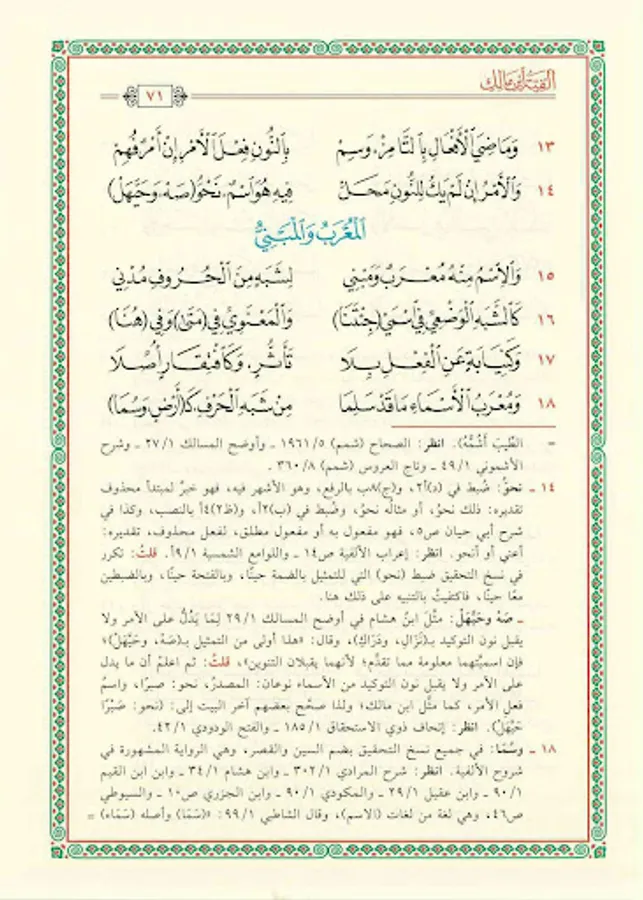 ألفية ابن مالك
٧١
١٣ وَمَاضِيَ الْأَفْعَالِ بِالتَّا مِزْ، وَسِمْ بِالنُّونِ فِعْلَ الْأَمْرِ إِنْ أَمْرٌ فُهِمْ
١٤ وَالْأَمْرُ إِنْ لَمْ يَكُ لِلنُّونِ مَحَلْ فِيهِ هُوَ اسْمٌ، نَحْوُ (صَهْ، وَحَيَّهَلْ)
الْمُعْرَبُ وَالْمَبْنِيُّ
١٥ وَالِاسْمُ مِنْهُ مُعْرَبٌ وَمَبْنِي لِشَبَهٍ مِنَ الْحُرُوفِ مُدْنِي
١٦ كَالشَّبَهِ الْوَضْعِيِّ فِي اسْمَيْ (جِئْتَنَا) وَالْمَعْنَوِيِّ فِي (مَتَى) وَفِي (هُنَا)
١٧ وَكَنِيَابَةٍ عَنِ الْفِعْلِ بِلَا تَأَثُّرٍ، وَكَافْتِقَارٍ أُصِّلَا
١٨ وَمُعْرَبُ الْأَسْمَاءِ مَا قَدْ سَلِمَا مِنْ شَبَهِ الْحَرْفِ، كَـ(أَرْضٍ وَسُمَا)
= الطِّيبَ أَشُمُّهُ). انظر: الصحاح (شمم) ١٩٦١/٥ ـ وأوضح المسالك ٢٧/١ ـ وشرح
الأشموني ٤٩/١ ـ وتاج العروس (شمم) ٣٦٠/٨.
١٤ ـ نحوُ: ضُبط في (د)٢أ، و(ج)٨ب بالرفع، وهو الأشهر فيه، فهو خبرٌ لمبتدأ محذوف
تقديره: ذلك نحوُ، أو مثالُه نحوُ، وضُبط في (ب)٢أ، و(ظ٢)٤أ بالنصب، وكذا في
شرح أبي حيان ص٥، فهو مفعول به أو مفعول مطلق، لفعل محذوف، تقديره:
أعني أو أنحو. انظر: إعراب الألفية ص١٤ ـ واللوامع الشمسية ٩/١أ. قلتُ: تكرر
في نسخ التحقيق ضبط (نحو) التي للتمثيل بالضمة حينًا، وبالفتحة حينًا، وبالضبطين
معًا حينًا، فاكتفيتُ بالتنبيه على ذلك هنا.
ـ صَهْ وحَيَّهَلْ: مثَّلَ ابنُ هشام في أوضح المسالك ٢٩/١ لِمَا يَدُلُّ على الأمر ولا
يقبل نون التوكيد بـ(نَزَالِ، ودَرَاكِ)، وقال: «هذا أولى من التمثيل بـ(صَهْ، وحَيَّهَلْ)؛
فإن اسميَّتهما معلومة مما تقدَّم؛ لأنهما يقبلان التنوين»، قلتُ: ثم اعلمْ أن ما يدل
على الأمر ولا يقبل نون التوكيد من الأسماء نوعان: المصدرُ، نحو: صبرًا، واسمُ
فعلِ الأمر، كما مثَّل ابن مالك؛ ولذا صحَّح بعضهم آخر البيت إلى: (نحو: صَبْرًا
حَيَّهَلْ). انظر: إتحاف ذوي الاستحقاق ١٨٥/١ ـ والفتح الودودي ٤٢/١.
١٨ ـ وسُمَا: في جميع نسخ التحقيق بضم السين والقصر، وهي الرواية المشهورة في
شروح الألفية. انظر: شرح المرادي ٣٠٢/١ ـ وابن هشام ٣٤/١ ـ وابن ابن القيم
٩٠/١ ـ وابن عقيل ٢٩/١ ـ والمكودي ٩٠/١ ـ وابن الجزري ص١٠ ـ والسيوطي
ص٤٦، وهي لغة من لغات (الاسم)، وقال الشاطبي ٩٩/١: «(سَمَا) وأصله (سَمَاء) =